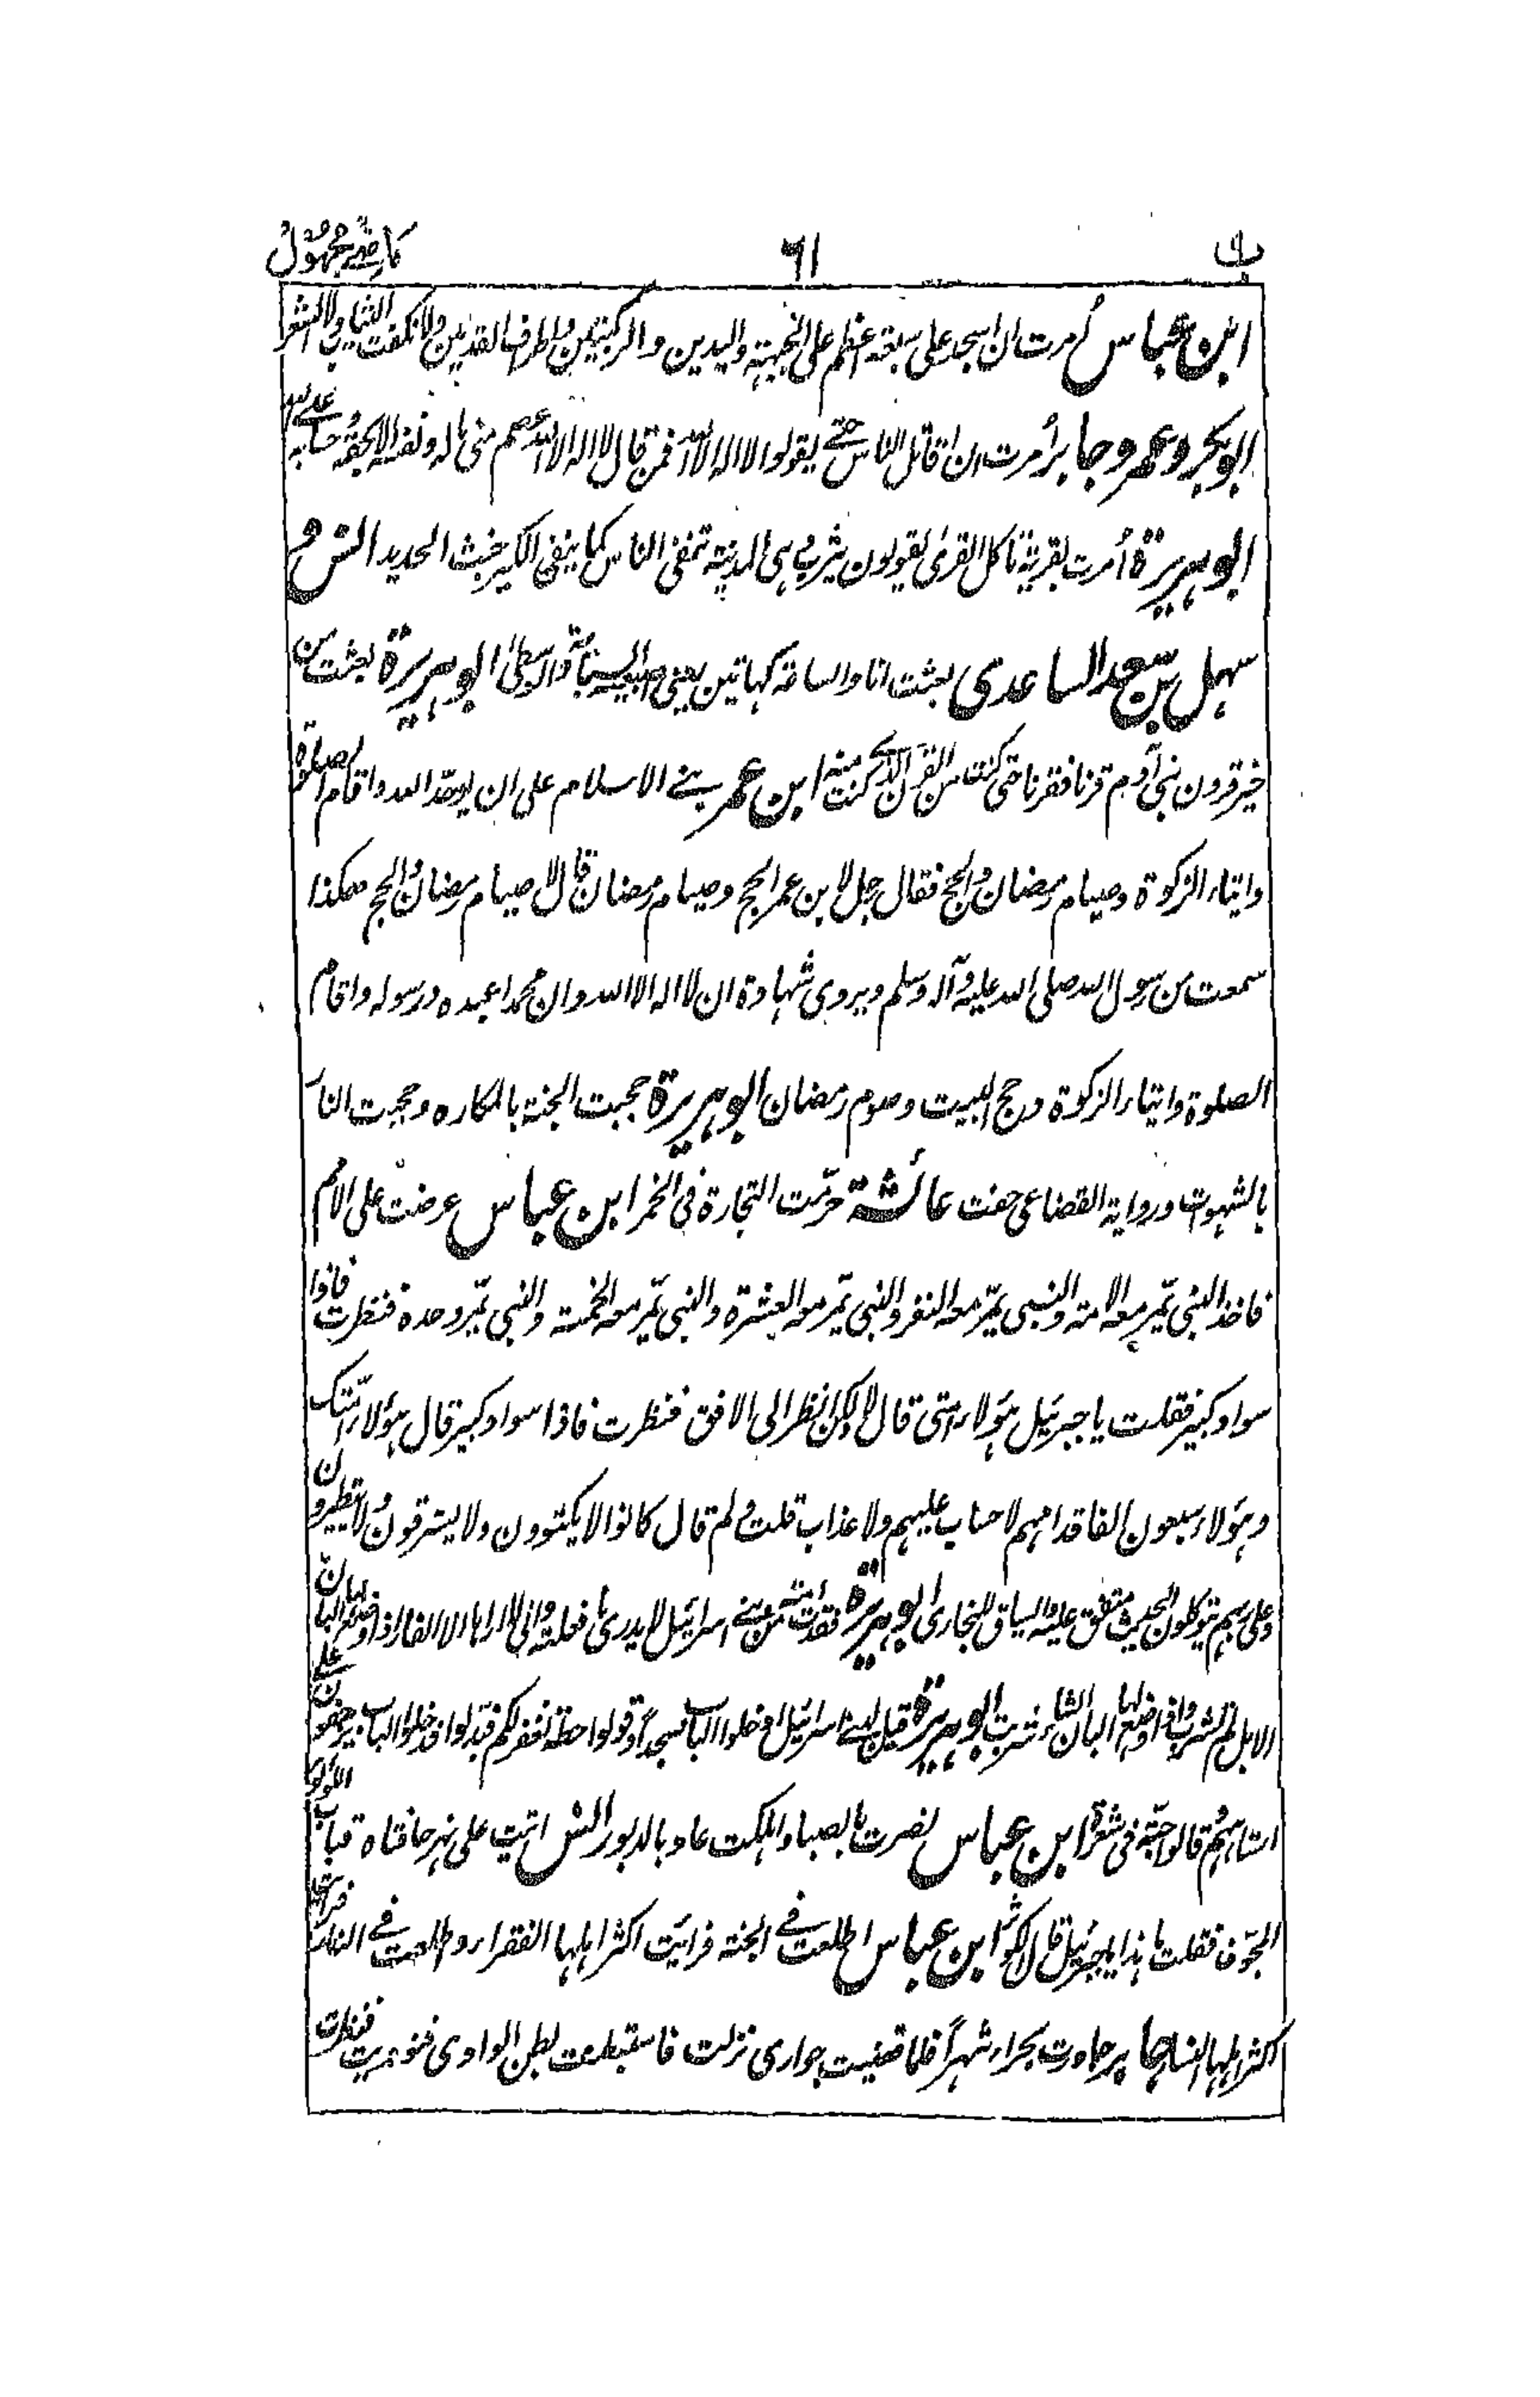 ب ٦١ ماضی مجهول
ابن عباس اُمرت ان اسجد على سبعة اعظم على الجبهة واليدين والركبتين واطراف القدمين ولا نكفت الثياب ولا الشعر
ابو بكر وعمر وجابر اُمرت ان اقاتل الناس حتے يقولوا لا اله الا الله فمن قال لا اله الا الله عصم منى ماله ونفسه الا بحقه وحسابه علے الله
ابو هريرة اُمرت بقرية تاكل القرىٰ يقولون يثرب وهى المدينة تنفى الناس كما ينفى الكير خبث الحديد انس و
سهل بن سعد الساعدى بعثت انا والساعة كهاتين يعنى اصبعيه السبابة والوسطىٰ ابو هريرة بعثت من
خير قرون بنى آدم قرنا فقرنا حتى كنت من القرن الذے كنت منه ابن عمر بنے الاسلام على ان يوحّد الله واقام الصلوة
وايتاء الزكوة وصيام رمضان والحج فقال رجل لابن عمر الحج وصيام رمضان قال لا صيام رمضان والحج هكذا
سمعت من رسول الله صلى الله عليه وآله وسلم ويروى شهادة ان لا اله الا الله وان محمدا عبده ورسوله واقام
الصلوة وايتاء الزكوة وحج البيت وصوم رمضان ابو هريرة حجبت الجنة بالمكاره وحجبت النار
بالشهوات ورواية القضاعى حفت عائشة حرّمت التجارة فى الخمر ابن عباس عرضت على الامم
فاخذ النبى يمّر معه الامة والنبى يمّر معه النفر والنبى يمّر معه العشرة والنبى يمّر معه الخمسة والنبى يمّر وحده فنظرت فاذا
سواد كثير فقلت يا جبرئيل هؤلاء امتى قال لا ولكن انظر الى الافق فنظرت فاذا سواد كبير قال هؤلاء امّتك
وهؤلاء سبعون الفا قدامهم لا حساب عليهم ولا عذاب قلت ولم قال كانوا لا يكتوون ولا يسترقون ولا يتطيرون
وعلى ربهم يتوكلون الحديث متفق عليه والسياق للبخارى ابو هريرة فقدت اُمّة من بنے اسرائيل لا يدرى ما فعلت وانى لا اراها الا الفار اذا وضع لها البان
الابل لم تشرب واذا وضع لها البان الشاء شربت ابو هريرة قيل لبنے اسرائيل ادخلوا الباب سجداً وقولوا حطة نغفر لكم فبدّلوا فدخلوا الباب يزحفون علے
استاههم وقالوا حبّة فى شعرة ابن عباس نصرت بالصبا واهلكت عاد بالدبور انس اتيت على نهر حافتاه قباب اللؤلؤ
المجوّف فقلت ما هذا يا جبرئيل قال الكوثر ابن عباس اطلعت فے الجنة فرايت اكثر اهلها الفقراء واطلعت فے النار فرايت
اكثر اهلها النساء جابر جاورت بحراء شهراً فلما قضيت جوارى نزلت فاستبطنت بطن الوادى فنوديت فنظرت